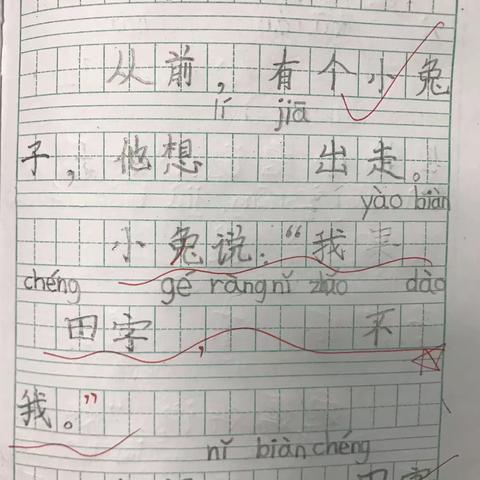 从前，有个小兔
lí jiā
子，他想 出走。
yào biàn
小兔说：“我
chéng gé ràng nǐ zhǎo dào
田字， 不
我。”
nǐ biàn chéng